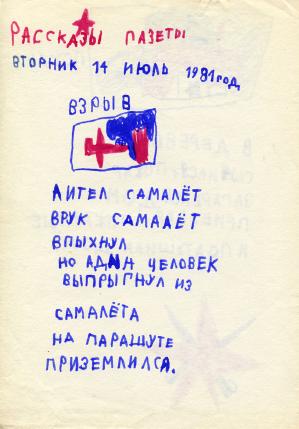 РАССКАЗЫ ГАЗЕТЫ
ВТОРНИК 14 ИЮЛЬ 1981 ГОД
ВЗРЫВ
ЛИТЕЛ САМАЛЁТ
ВРУК САМАЛЁТ
ВПЫХНУЛ
НО АДИН ЧЕЛОВЕК
ВЫПРЫГНУЛ ИЗ
САМАЛЁТА
НА ПАРАШУТЕ
ПРИЗЕМЛИЛСЯ.